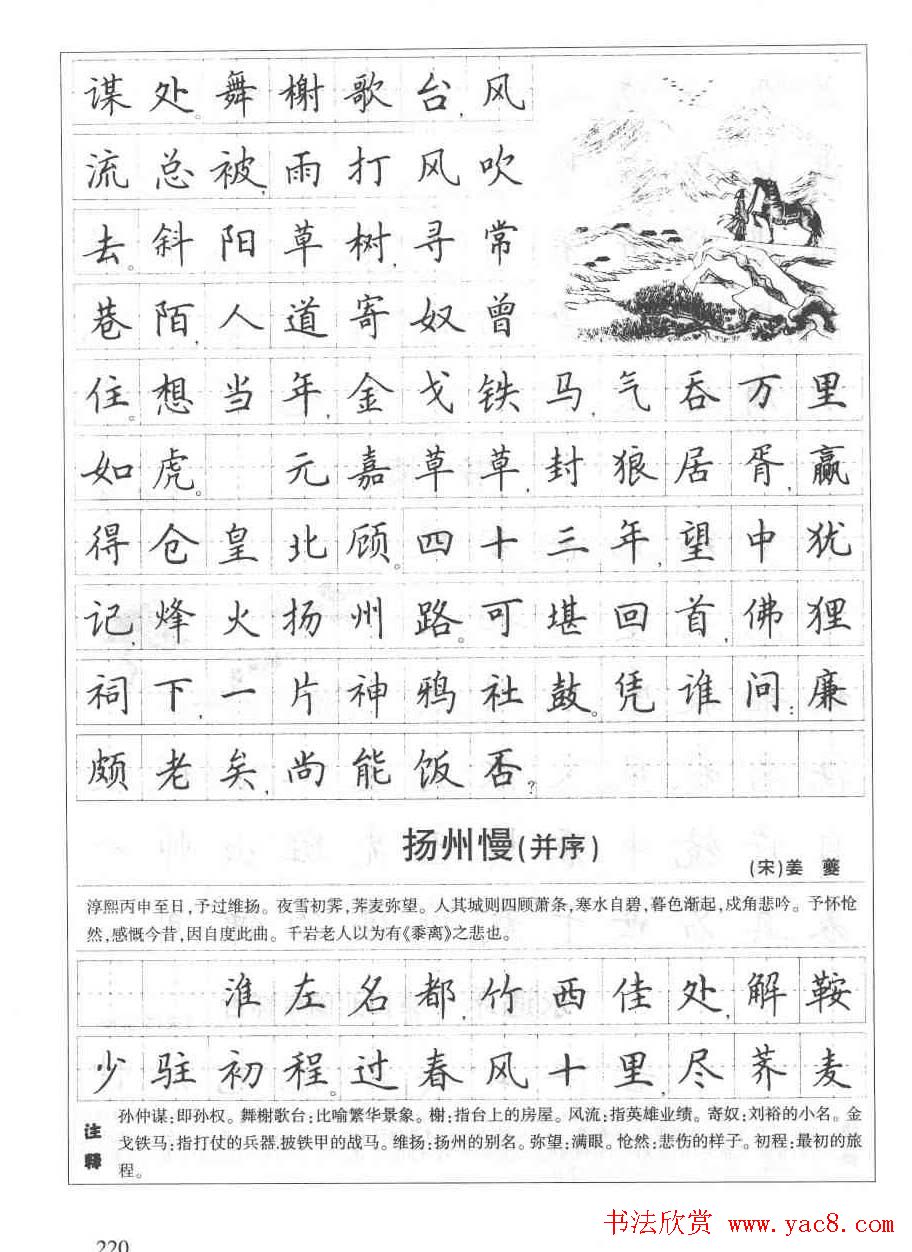 谋处。舞榭歌台,风
流总被,雨打风吹
去。斜阳草树,寻常
巷陌,人道寄奴曾
住。想当年,金戈铁马,气吞万里
如虎。 元嘉草草,封狼居胥,赢
得仓皇北顾。四十三年,望中犹
记,烽火扬州路。可堪回首,佛狸
祠下,一片神鸦社鼓。凭谁问:廉
颇老矣,尚能饭否?
扬州慢(并序)
(宋)姜 夔
淳熙丙申至日,予过维扬。夜雪初霁,荠麦弥望。人其城则四顾萧条,寒水自碧,暮色渐起,戍角悲吟。予怀怆
然,感慨今昔,因自度此曲。千岩老人以为有《黍离》之悲也。
淮左名都,竹西佳处,解鞍
少驻初程。过春风十里,尽荠麦
注释
孙仲谋:即孙权。舞榭歌台:比喻繁华景象。榭:指台上的房屋。风流:指英雄业绩。寄奴:刘裕的小名。金
戈铁马:指打仗的兵器.披铁甲的战马。维扬:扬州的别名。弥望:满眼。怆然:悲伤的样子。初程:最初的旅
程。
220
书法欣赏 www.yac8.com